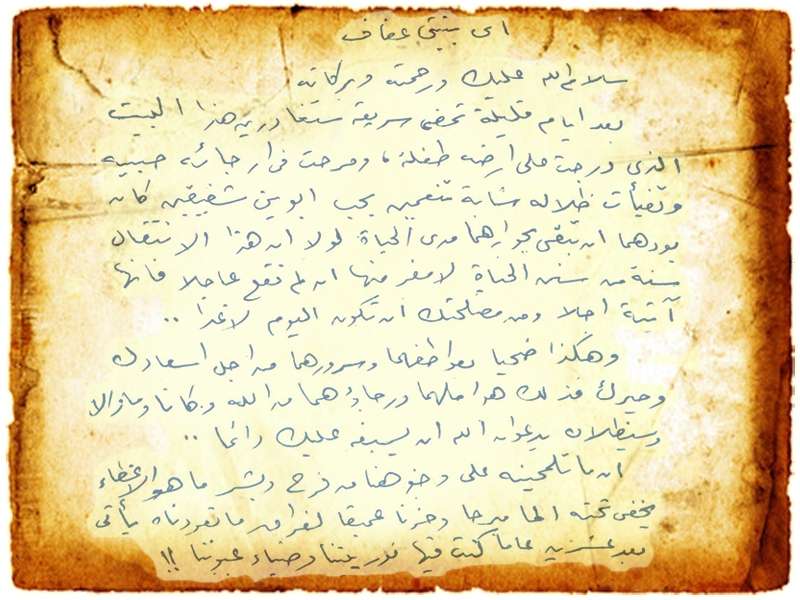 الى بنيتي عفاف
سلام الله عليك ورحمته وبركاته
بعد ايام قليلة تمضى سريعة ستغادرين هذا البيت
الذى درجت على ارضه طفلة ، ومرحت فى ارجائه صبيه
وتفيأت ظلاله شابة تنعمين بحب ابوين شفيقين كان
بودهما ان تبقى بجوارهما مدى الحياة لولا ان هذا الانتقال
سنة من سنن الحياة لا مفر منها ان لم تقع عاجلا فانها
آتية اجلا ومن مصلحتك ان تكون اليوم لا غدا ..
وهكذا ضحيا بعواطفهما وسرورهما من اجل اسعادك
وخيرك فذلك هو املهما ورجاؤهما من الله وكانا وما زالا
وسيظلان يدعوان الله ان يسبغه عليك دائما ..
ان ما تلمحينه على وجوهنا من فرح وبشر ما هو الا غطاء
يخفى تحته الما مبرحا وحزنا عميقا لفراق ما تعودناه يأتى
بعد عشرين عاما كنت فيها نور بيتنا وضياء عيوننا !!